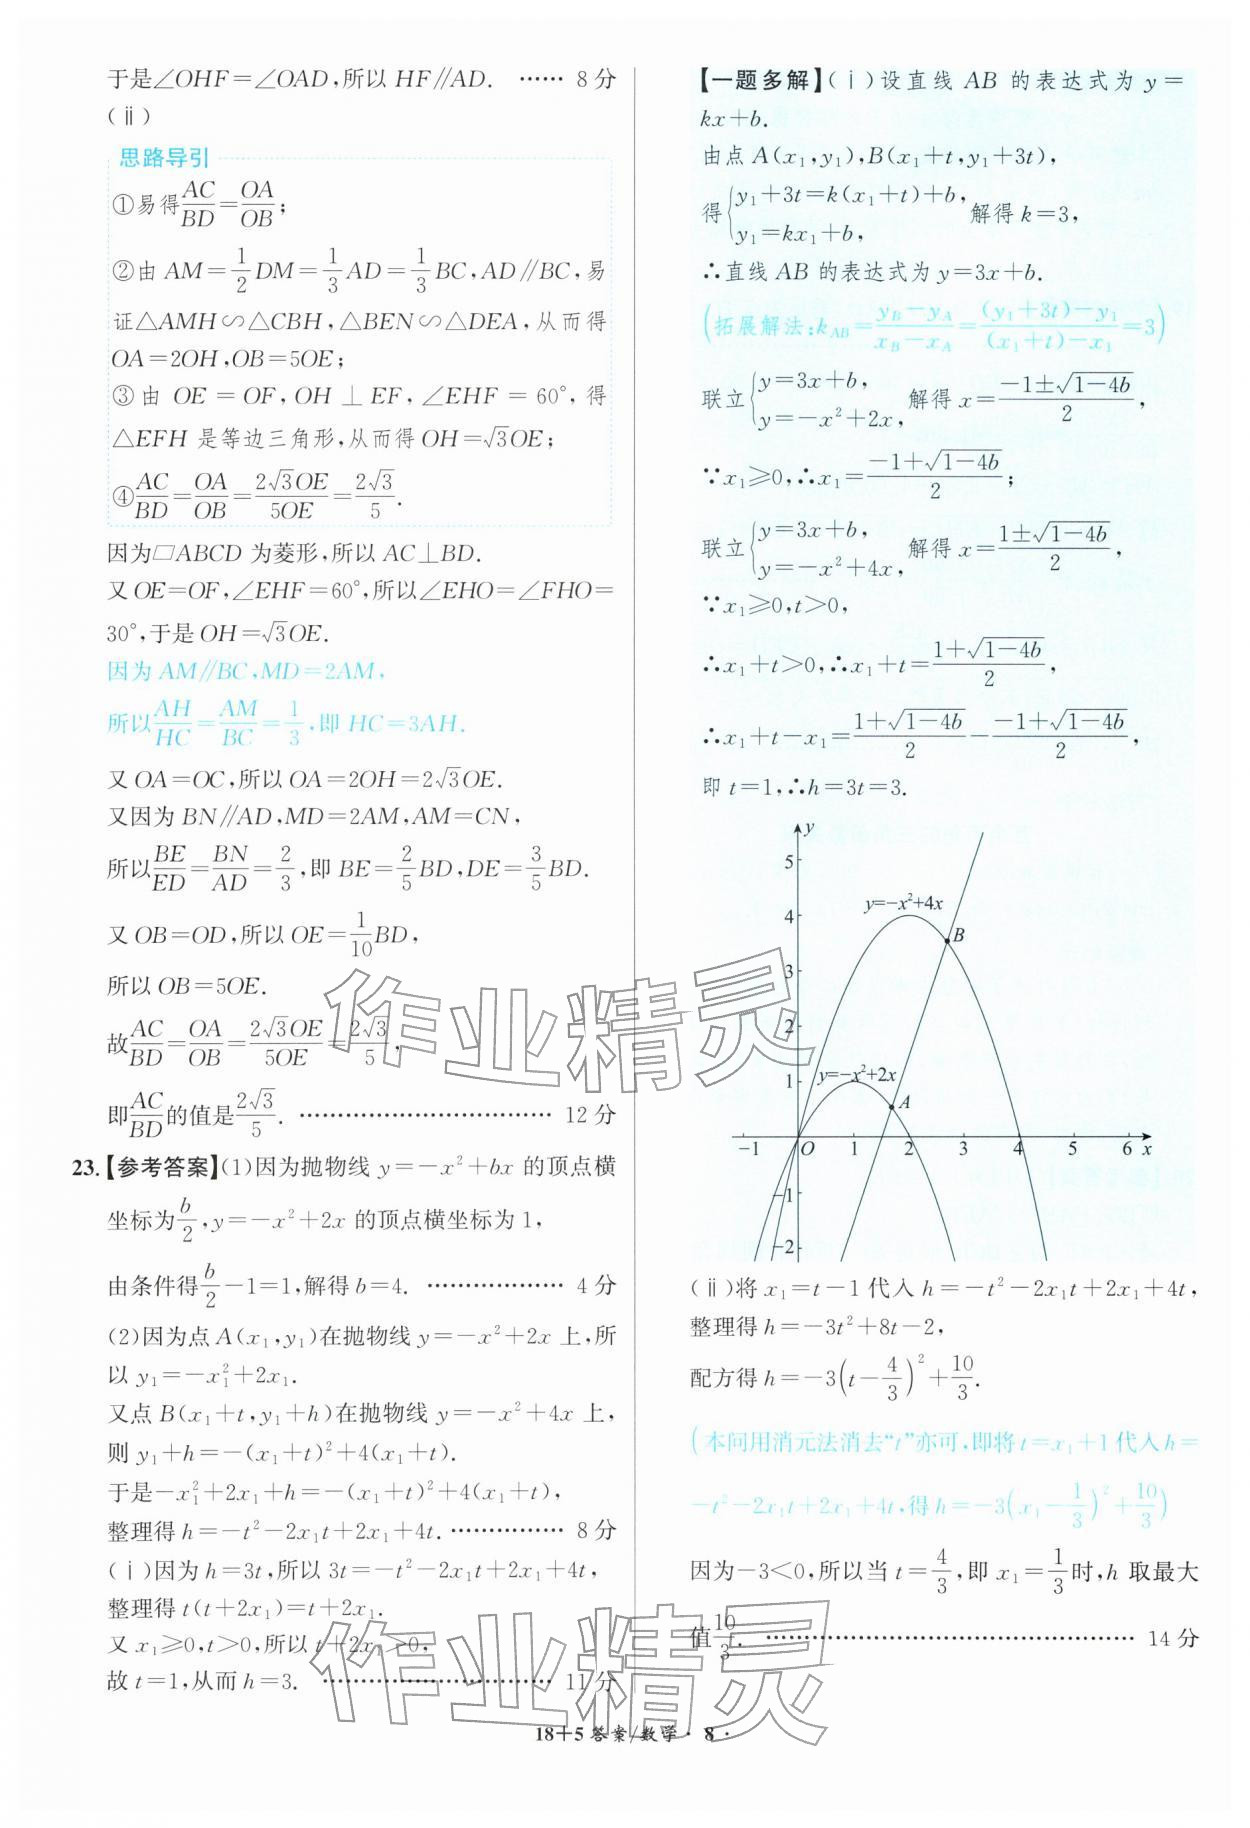 于是∠OHF=∠OAD,所以 HF∥AD. …… 8分
(ⅱ)
思路导引
①易得AC/BD=OA/OB;
②由 AM=1/2DM=1/3AD=1/3BC,AD∥BC,易
证△AMH∽△CBH,△BEN∽△DEA,从而得
OA=2OH,OB=5OE;
③由 OE=OF,OH⊥EF,∠EHF=60°,得
△EFH 是等边三角形,从而得OH=√3OE;
④AC/BD=OA/OB=2√3OE/5OE=2√3/5.
因为▱ABCD 为菱形,所以 AC⊥BD.
又 OE=OF,∠EHF=60°,所以∠EHO=∠FHO=
30°,于是 OH=√3OE.
因为 AM∥BC,MD=2AM,
所以AH/HC=AM/BC=1/3,即 HC=3AH.
又 OA=OC,所以 OA=2OH=2√3OE.
又因为 BN∥AD,MD=2AM,AM=CN,
所以BE/ED=BN/AD=2/3,即 BE=2/5BD,DE=3/5BD.
又 OB=OD,所以 OE=1/10BD,
所以 OB=5OE.
故AC/BD=OA/OB=2√3OE/5OE=2√3/5,
即AC/BD的值是2√3/5. …………………………… 12分
23.【参考答案】(1)因为抛物线 y=-x²+bx 的顶点横
坐标为b/2,y=-x²+2x 的顶点横坐标为1,
由条件得b/2-1=1,解得 b=4. ……………… 4分
(2)因为点 A(x₁,y₁)在抛物线 y=-x²+2x 上,所
以 y₁=-x₁²+2x₁.
又点 B(x₁+t,y₁+h)在抛物线 y=-x²+4x 上,
则 y₁+h=-(x₁+t)²+4(x₁+t).
于是-x₁²+2x₁+h=-(x₁+t)²+4(x₁+t),
整理得 h=-t²-2x₁t+2x₁+4t. …………… 8分
(ⅰ)因为 h=3t,所以 3t=-t²-2x₁t+2x₁+4t,
整理得 t(t+2x₁)=t+2x₁.
又 x₁≥0,t>0,所以 t+2x₁>0,
故 t=1,从而 h=3. ………………………… 11分
【一题多解】(ⅰ)设直线 AB 的表达式为 y=
kx+b.
由点 A(x₁,y₁),B(x₁+t,y₁+3t),
得{y₁+3t=k(x₁+t)+b, y₁=kx₁+b, 解得 k=3,
∴直线 AB 的表达式为 y=3x+b.
(拓展解法:k_AB=(y_B-y_A)/(x_B-x_A)=((y₁+3t)-y₁)/((x₁+t)-x₁)=3)
联立{y=3x+b, y=-x²+2x, 解得 x=(-1±√(1-4b))/2,
∵x₁≥0,∴x₁=(-1+√(1-4b))/2;
联立{y=3x+b, y=-x²+4x, 解得 x=(1±√(1-4b))/2,
∵x₁≥0,t>0,
∴x₁+t>0,∴x₁+t=(1+√(1-4b))/2,
∴x₁+t-x₁=(1+√(1-4b))/2-(-1+√(1-4b))/2,
即 t=1,∴h=3t=3.
y
5
y=-x²+4x
4
B
3
2
y=-x²+2x
1
A
-1 O 1 2 3 4 5 6 x
-1
-2
(ⅱ)将 x₁=t-1 代入 h=-t²-2x₁t+2x₁+4t,
整理得 h=-3t²+8t-2,
配方得 h=-3(t-4/3)²+10/3.
(本问用消元法消去“t”亦可,即将 t=x₁+1 代入 h=
-t²-2x₁t+2x₁+4t,得 h=-3(x₁-1/3)²+10/3)
因为-3<0,所以当 t=4/3,即 x₁=1/3时,h 取最大
值10/3. ……………………………………… 14分
18+5 答案/数学 · 8 ·
作业精灵
作业精灵